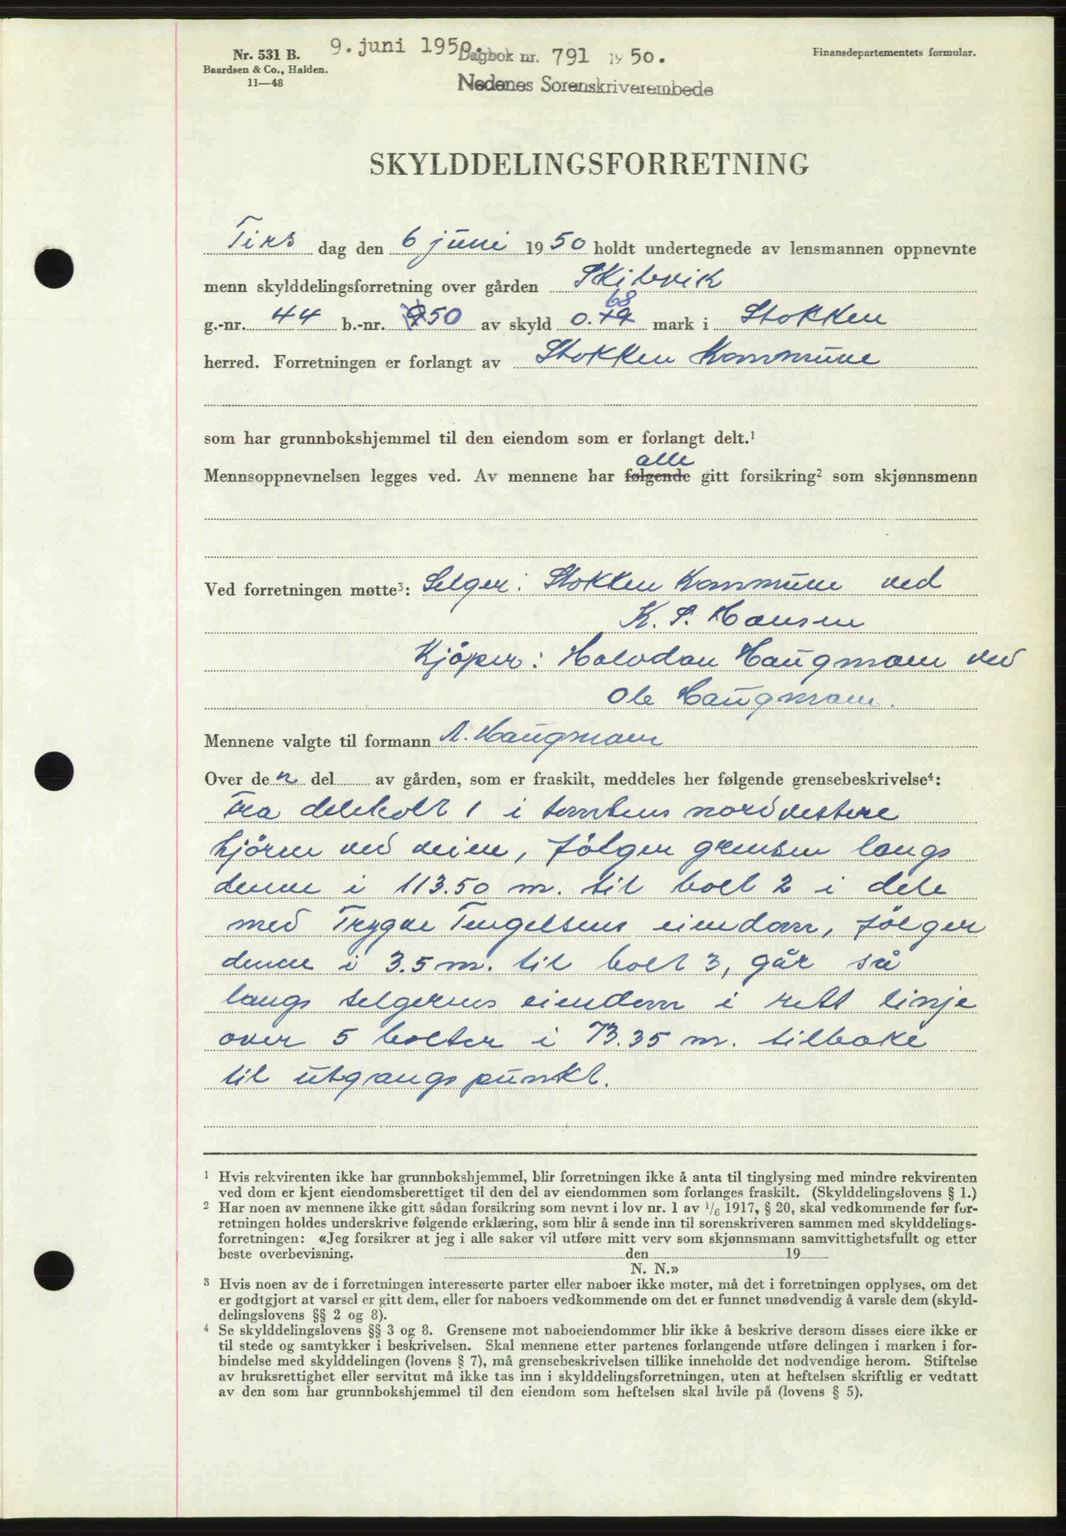 9. juni 1950.
Nr. 531 B.
Baardsen & Co., Halden.
11—48
Dagbok nr. 791 19 50.
Nedenes Sorenskriverembede
Finansdepartementets formular.
SKYLDDELINGSFORRETNING
Tirs dag den 6 juni 19 50 holdt undertegnede av lensmannen oppnevnte
menn skylddelingsforretning over gården Skibvik
68
g.-nr. 44 b.-nr. 50 av skyld 0. mark i Stokken
herred. Forretningen er forlangt av Stokken Kommune
som har grunnbokshjemmel til den eiendom som er forlangt delt.¹
alle
Mennsoppnevnelsen legges ved. Av mennene har følgende gitt forsikring² som skjønnsmenn
Ved forretningen møtte³: Selger: Stokken Kommune ved
K. S. Hansen
Kjöper: Halvdan Haugmann ved
Ole Haugmann.
Mennene valgte til formann A. Haugmann
Over de n del av gården, som er fraskilt, meddeles her følgende grensebeskrivelse⁴:
Fra delebolt 1 i tomtens nordvestere
hjörne ved veien, fölger grensen langs
denne i 113.50 m. til bolt 2 i dele
med Trygve Tengelsens eiendom, fölger
denne i 3.5 m. til bolt 3, går så
langs selgerens eiendom i rett linje
over 5 bolter i 73.35 m. tilbake
til utgangspunkt.
¹ Hvis rekvirenten ikke har grunnbokshjemmel, blir forretningen ikke å anta til tinglysing med mindre rekvirenten
ved dom er kjent eiendomsberettiget til den del av eiendommen som forlanges fraskilt. (Skylddelingslovens § 1.)
² Har noen av mennene ikke gitt sådan forsikring som nevnt i lov nr. 1 av ¹/₆ 1917, § 20, skal vedkommende før for-
retningen holdes underskrive følgende erklæring, som blir å sende inn til sorenskriveren sammen med skylddelings-
forretningen: «Jeg forsikrer at jeg i alle saker vil utføre mitt verv som skjønnsmann samvittighetsfullt og etter
beste overbevisning. den 19
N. N.»
³ Hvis noen av de i forretningen interesserte parter eller naboer ikke møter, må det i forretningen opplyses, om det
er godtgjort at varsel er gitt dem, eller for naboers vedkommende om det er funnet unødvendig å varsle dem (skyld-
delingslovens §§ 2 og 8).
⁴ Se skylddelingslovens §§ 3 og 8. Grensene mot naboeiendommer blir ikke å beskrive dersom disses eiere ikke er
til stede og samtykker i beskrivelsen. Skal mennene etter partenes forlangende utføre delingen i marken i for-
bindelse med skylddelingen (lovens § 7), må grensebeskrivelsen tillike inneholde det nødvendige herom. Stiftelse
av bruksrettighet eller servitut må ikke tas inn i skylddelingsforretningen, uten at heftelsen skriftlig er vedtatt
av den som har grunnbokshjemmel til den eiendom som heftelsen skal hvile på (lovens § 5).